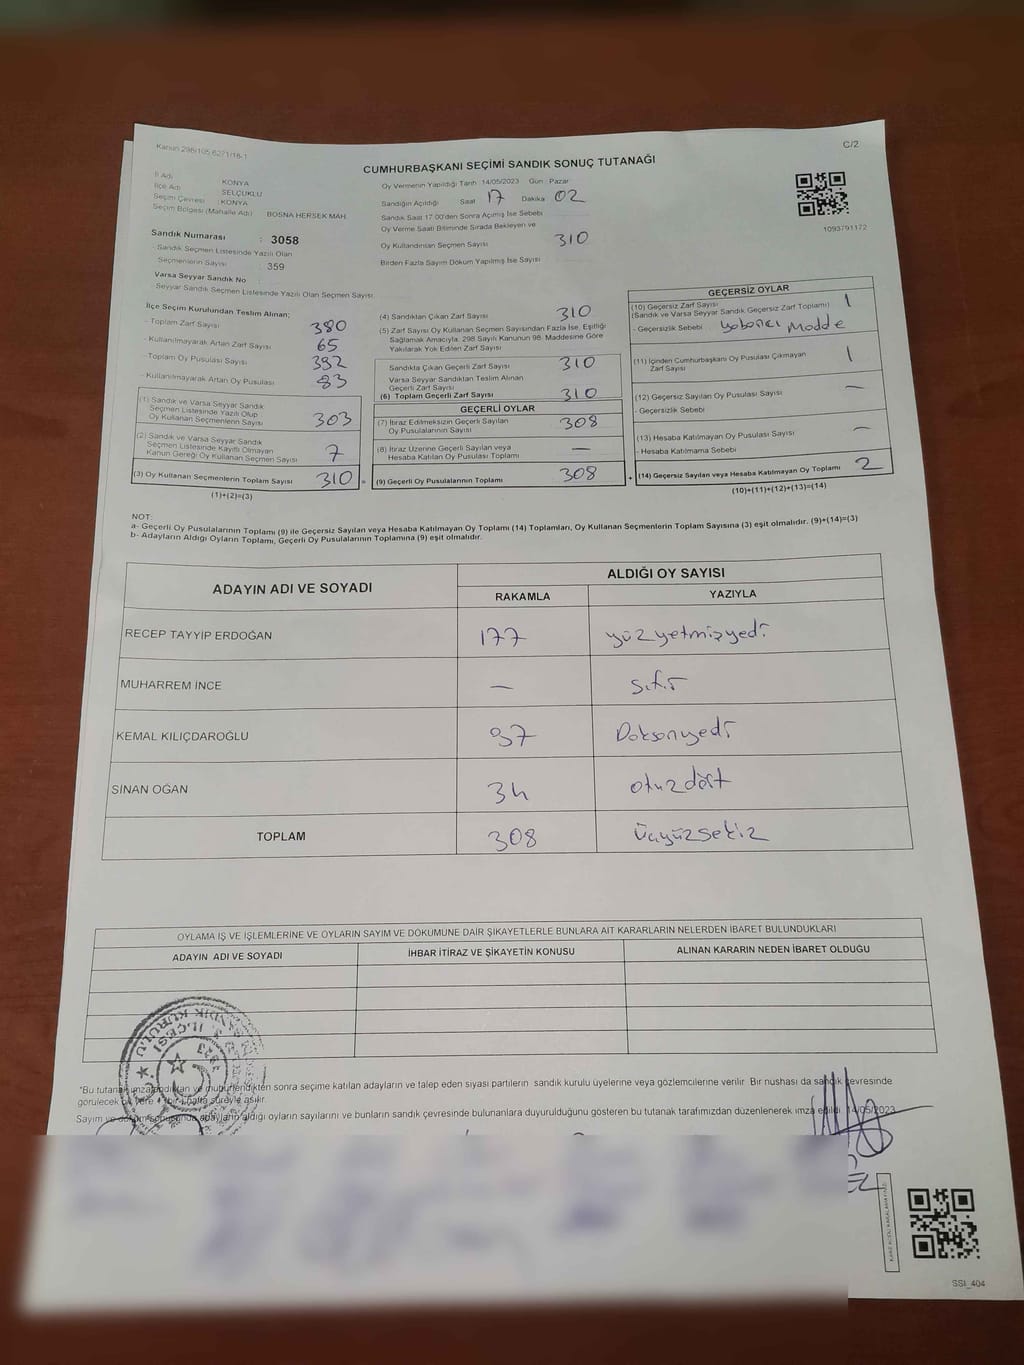 Kanun 298/105,6271/18-1
C/2
CUMHURBAŞKANI SEÇİMİ SANDIK SONUÇ TUTANAĞI
İl Adı : KONYA
İlçe Adı : SELÇUKLU
Seçim Çevresi : KONYA
Seçim Bölgesi (Mahalle Adı) BOSNA HERSEK MAH.
Sandık Numarası : 3058
- Sandık Seçmen Listesinde Yazılı Olan
Seçmenlerin Sayısı : 359
Varsa Seyyar Sandık No
Seyyar Sandık Seçmen Listesinde Yazılı Olan Seçmen Sayısı
Oy Vermenin Yapıldığı Tarih :14/05/2023 Gün : Pazar
Sandığın Açıldığı Saat 17 Dakika 02
Sandık Saat 17.00'den Sonra Açılmış İse Sebebi
Oy Verme Saati Bitiminde Sırada Bekleyen ve
Oy Kullandırılan Seçmen Sayısı 310
Birden Fazla Sayım Döküm Yapılmış İse Sayısı
1093791172
İlçe Seçim Kurulundan Teslim Alınan;
- Toplam Zarf Sayısı 380
- Kullanılmayarak Artan Zarf Sayısı 65
- Toplam Oy Pusulası Sayısı 392
- Kullanılmayarak Artan Oy Pusulası 83
(1) Sandık ve Varsa Seyyar Sandık
Seçmen Listesinde Yazılı Olup
Oy Kullanan Seçmenlerin Sayısı 303
(2) Sandık ve Varsa Seyyar Sandık
Seçmen Listesinde Kayıtlı Olmayan
Kanun Gereği Oy Kullanan Seçmen Sayısı 7
(3) Oy Kullanan Seçmenlerin Toplam Sayısı 310 =
(1)+(2)=(3)
(4) Sandıktan Çıkan Zarf Sayısı 310
(5) Zarf Sayısı Oy Kullanan Seçmen Sayısından Fazla İse, Eşitliği
Sağlamak Amacıyla, 298 Sayılı Kanunun 98. Maddesine Göre
Yakılarak Yok Edilen Zarf Sayısı
Sandıkta Çıkan Geçerli Zarf Sayısı 310
Varsa Seyyar Sandıktan Teslim Alınan
Geçerli Zarf Sayısı
(6) Toplam Geçerli Zarf Sayısı 310
GEÇERLİ OYLAR
(7) İtiraz Edilmeksizin Geçerli Sayılan
Oy Pusulalarının Sayısı 308
(8) İtiraz Üzerine Geçerli Sayılan veya
Hesaba Katılan Oy Pusulası Toplamı —
(9) Geçerli Oy Pusulalarının Toplamı 308 +
GEÇERSİZ OYLAR
(10) Geçersiz Zarf Sayısı 1
(Sandık ve Varsa Seyyar Sandık Geçersiz Zarf Toplamı)
- Geçersizlik Sebebi yabancı Madde
(11) İçinden Cumhurbaşkanı Oy Pusulası Çıkmayan
Zarf Sayısı 1
(12) Geçersiz Sayılan Oy Pusulası Sayısı —
- Geçersizlik Sebebi
(13) Hesaba Katılmayan Oy Pusulası Sayısı —
- Hesaba Katılmama Sebebi
(14) Geçersiz Sayılan veya Hesaba Katılmayan Oy Toplamı 2
(10)+(11)+(12)+(13)=(14)
NOT:
a- Geçerli Oy Pusulalarının Toplamı (9) ile Geçersiz Sayılan veya Hesaba Katılmayan Oy Toplamı (14) Toplamları, Oy Kullanan Seçmenlerin Toplam Sayısına (3) eşit olmalıdır. (9)+(14)=(3)
b- Adayların Aldığı Oyların Toplamı, Geçerli Oy Pusulalarının Toplamına (9) eşit olmalıdır.
ADAYIN ADI VE SOYADI ALDIĞI OY SAYISI
RAKAMLA YAZIYLA
RECEP TAYYİP ERDOĞAN 177 yüzyetmişyedi
MUHARREM İNCE — sıfır
KEMAL KILIÇDAROĞLU 97 Doksanyedi
SİNAN OĞAN 34 otuzdört
TOPLAM 308 üçyüzsekiz
OYLAMA İŞ VE İŞLEMLERİNE VE OYLARIN SAYIM VE DÖKÜMÜNE DAİR ŞİKAYETLERLE BUNLARA AİT KARARLARIN NELERDEN İBARET BULUNDUKLARI
ADAYIN ADI VE SOYADI İHBAR İTİRAZ VE ŞİKAYETİN KONUSU ALINAN KARARIN NEDEN İBARET OLDUĞU
*Bu tutanak imzalandıktan ve mühürlendikten sonra seçime katılan adayların ve talep eden siyasi partilerin sandık kurulu üyelerine veya gözlemcilerine verilir. Bir nüshası da sandık çevresinde
görülecek bir yere bir hafta süreyle asılır.
Sayım ve döküm sonucunda adayların aldığı oyların sayılarını ve bunların sandık çevresinde bulunanlara duyurulduğunu gösteren bu tutanak tarafımızdan düzenlenerek imza edildi. 14/05/2023
SSI_404